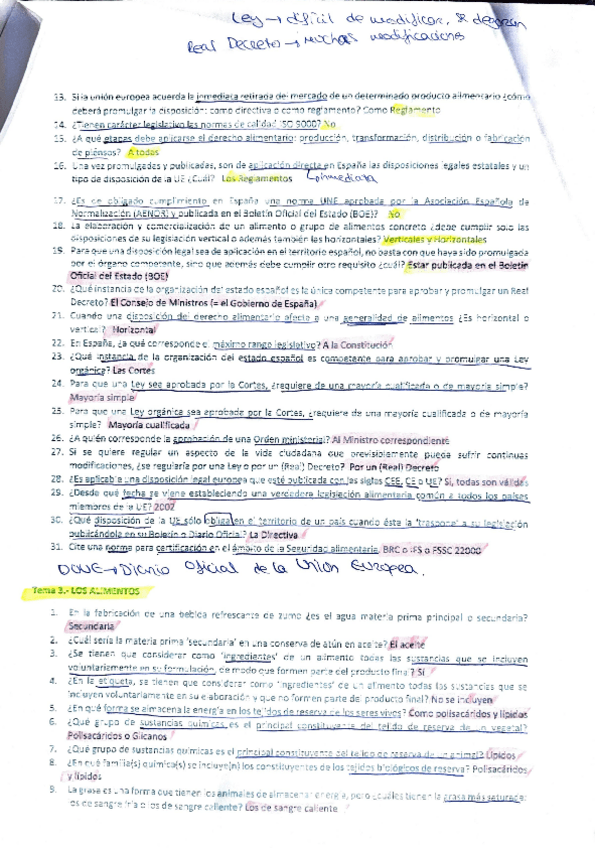 Ley → difícil de modificar, se degeran
Real Decreto → Muchas modificaciones
13. Si la unión europea acuerda la inmediata retirada del mercado de un determinado producto alimentario ¿cómo
deberá promulgar la disposición: como directiva o como reglamento? Como Reglamento
14. ¿Tienen carácter legislativo las normas de calidad ISO 9000? No
15. ¿A qué etapas debe aplicarse el derecho alimentario: producción, transformación, distribución o fabricación
de piensos? A todas
16. Una vez promulgadas y publicadas, son de aplicación directa en España las disposiciones legales estatales y un
tipo de disposición de la UE ¿Cuál? Los Reglamentos
inmediata
17. ¿Es de obligado cumplimiento en España una norma UNE aprobada por la Asociación Española de
Normalización (AENOR) y publicada en el Boletín Oficial del Estado (BOE)? No
18. La elaboración y comercialización de un alimento o grupo de alimentos concreto ¿debe cumplir solo las
disposiciones de su legislación vertical o además también las horizontales? Verticales y Horizontales
19. Para que una disposición legal sea de aplicación en el territorio español, no basta con que haya sido promulgada
por el órgano competente, sino que además debe cumplir otro requisito ¿cuál? Estar publicada en el Boletín
Oficial del Estado (BOE)
20. ¿Qué instancia de la organización del estado español es la única competente para aprobar y promulgar un Real
Decreto? El Consejo de Ministros (= el Gobierno de España)
21. Cuando una disposición del derecho alimentario afecta a una generalidad de alimentos ¿Es horizontal o
vertical? Horizontal
22. En España, ¿a qué corresponde el máximo rango legislativo? A la Constitución
23. ¿Qué instancia de la organización del estado español es competente para aprobar y promulgar una Ley
orgánica? Las Cortes
24. Para que una Ley sea aprobada por la Cortes, ¿requiere de una mayoría cualificada o de mayoría simple?
Mayoría simple
25. Para que una Ley orgánica sea aprobada por la Cortes, ¿requiere de una mayoría cualificada o de mayoría
simple? Mayoría cualificada
26. ¿A quién corresponde la aprobación de una Orden ministerial? Al Ministro correspondiente
27. Si se quiere regular un aspecto de la vida ciudadana que previsiblemente pueda sufrir continuas
modificaciones, ¿se regularía por una Ley o por un (Real) Decreto? Por un (Real) Decreto
28. ¿Es aplicable una disposición legal europea que esté publicada con las siglas CEE, CE o UE? Sí, todas son válidas
29. ¿Desde qué fecha se viene estableciendo una verdadera legislación alimentaria común a todos los países
miembros de la UE? 2002
30. ¿Qué disposición de la UE sólo obliga en el territorio de un país cuando éste la 'traspone' a su legislación
publicándola en su Boletín o Diario Oficial? La Directiva
31. Cite una norma para certificación en el ámbito de la Seguridad alimentaria. BRC o IFS o FSSC 22000
DOUE → Diario Oficial de la Unión Europea.
Tema 3.- LOS ALIMENTOS
1. En la fabricación de una bebida refrescante de zumo ¿es el agua materia prima principal o secundaria?
Secundaria
2. ¿Cuál sería la materia prima 'secundaria' en una conserva de atún en aceite? El aceite
3. ¿Se tienen que considerar como 'ingredientes' de un alimento todas las sustancias que se incluyen
voluntariamente en su formulación, de modo que formen parte del producto final? Sí
4. ¿En la etiqueta, se tienen que considerar como 'ingredientes' de un alimento todas las sustancias que se
incluyen voluntariamente en su elaboración y que no formen parte del producto final? No se incluyen
5. ¿En qué forma se almacena la energía en los tejidos de reserva de los seres vivos? Como polisacáridos y lípidos
6. ¿Qué grupo de sustancias químicas es el principal constituyente del tejido de reserva de un vegetal?
Polisacáridos o Glicanos
7. ¿Qué grupo de sustancias químicas es el principal constituyente del tejido de reserva de un animal? Lípidos
8. ¿En qué familia(s) química(s) se incluye(n) los constituyentes de los tejidos biológicos de reserva? Polisacáridos
y lípidos
9. La grasa es una forma que tienen los animales de almacenar energía, pero ¿cuáles tienen la grasa más saturada:
los de sangre fría o los de sangre caliente? Los de sangre caliente